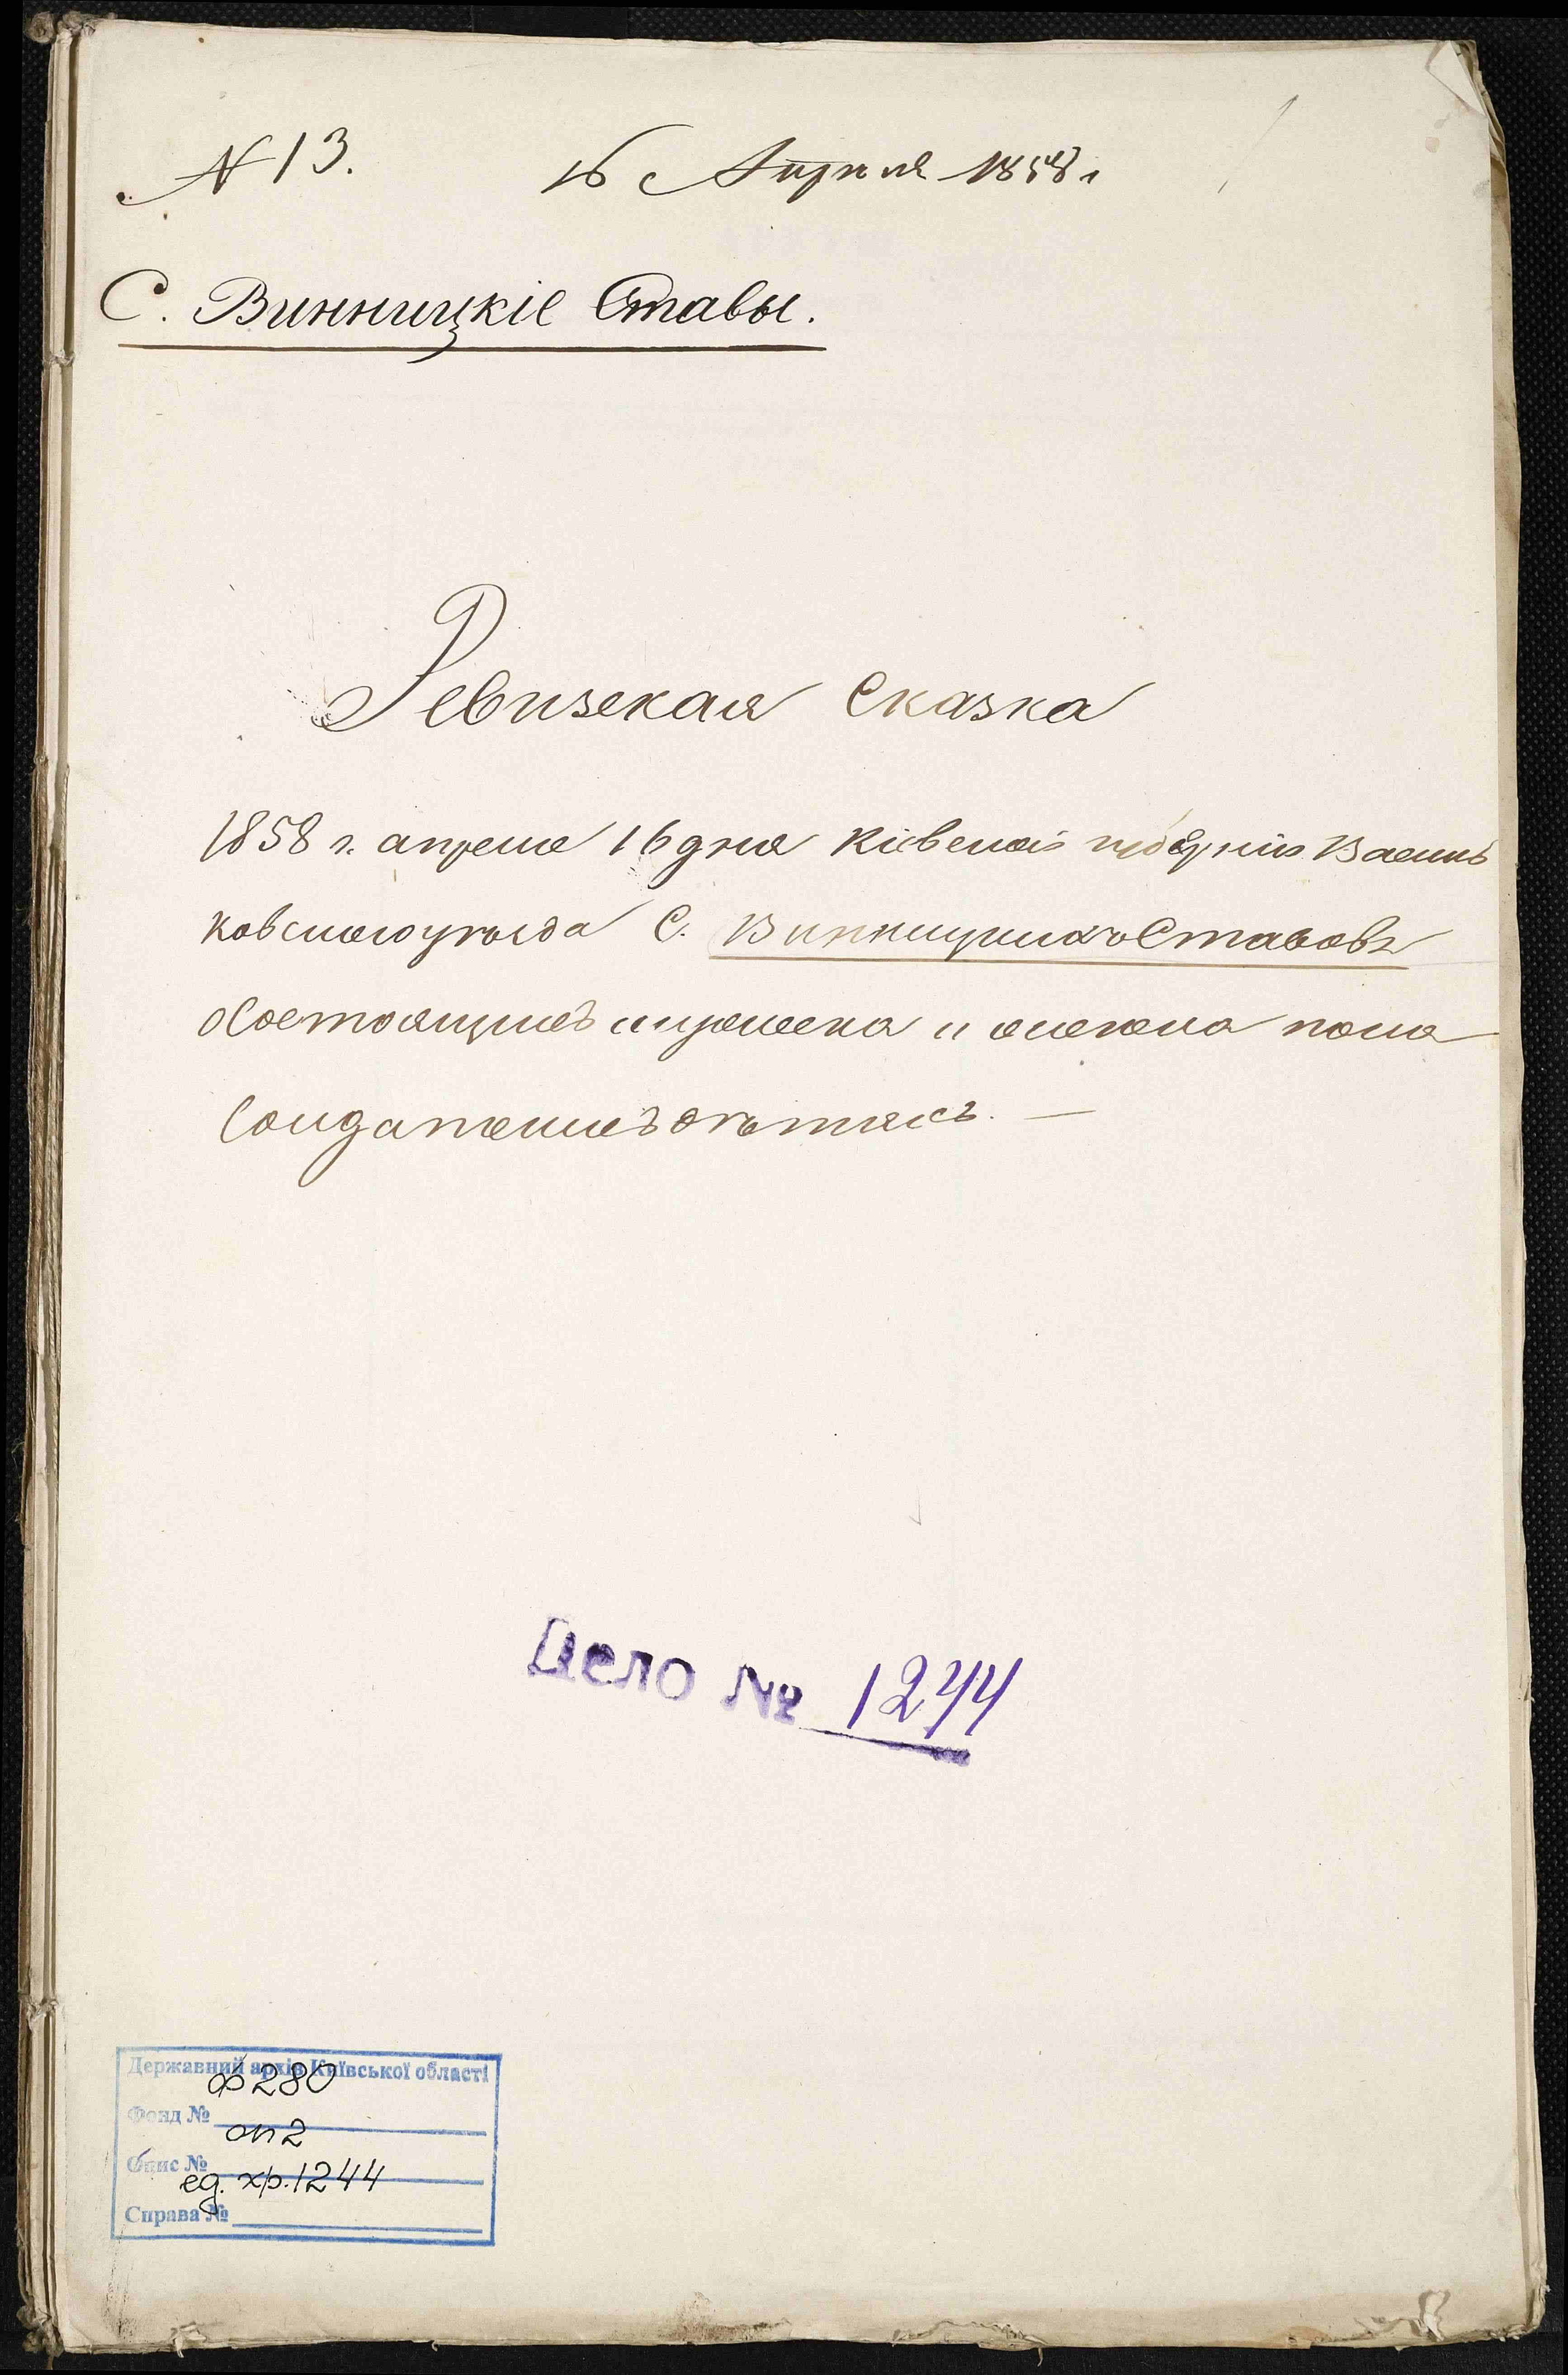 № 13. 16 Апреля 1858 г
С. Винницкіе Ставы.
Ревизская Сказка
1858 г. апреля 16 дня Кіевской губерніи Василь
ковского уѣзда С. Винницкихъ Ставовъ
о Состоящихъ мужеска и женска пола
Солдатскихъ дѣтяхъ. —
Дело № 1244
Державний архів Київської області
ф 280
Фонд №
оп 2
Опис №
ед. хр. 1244
Справа №